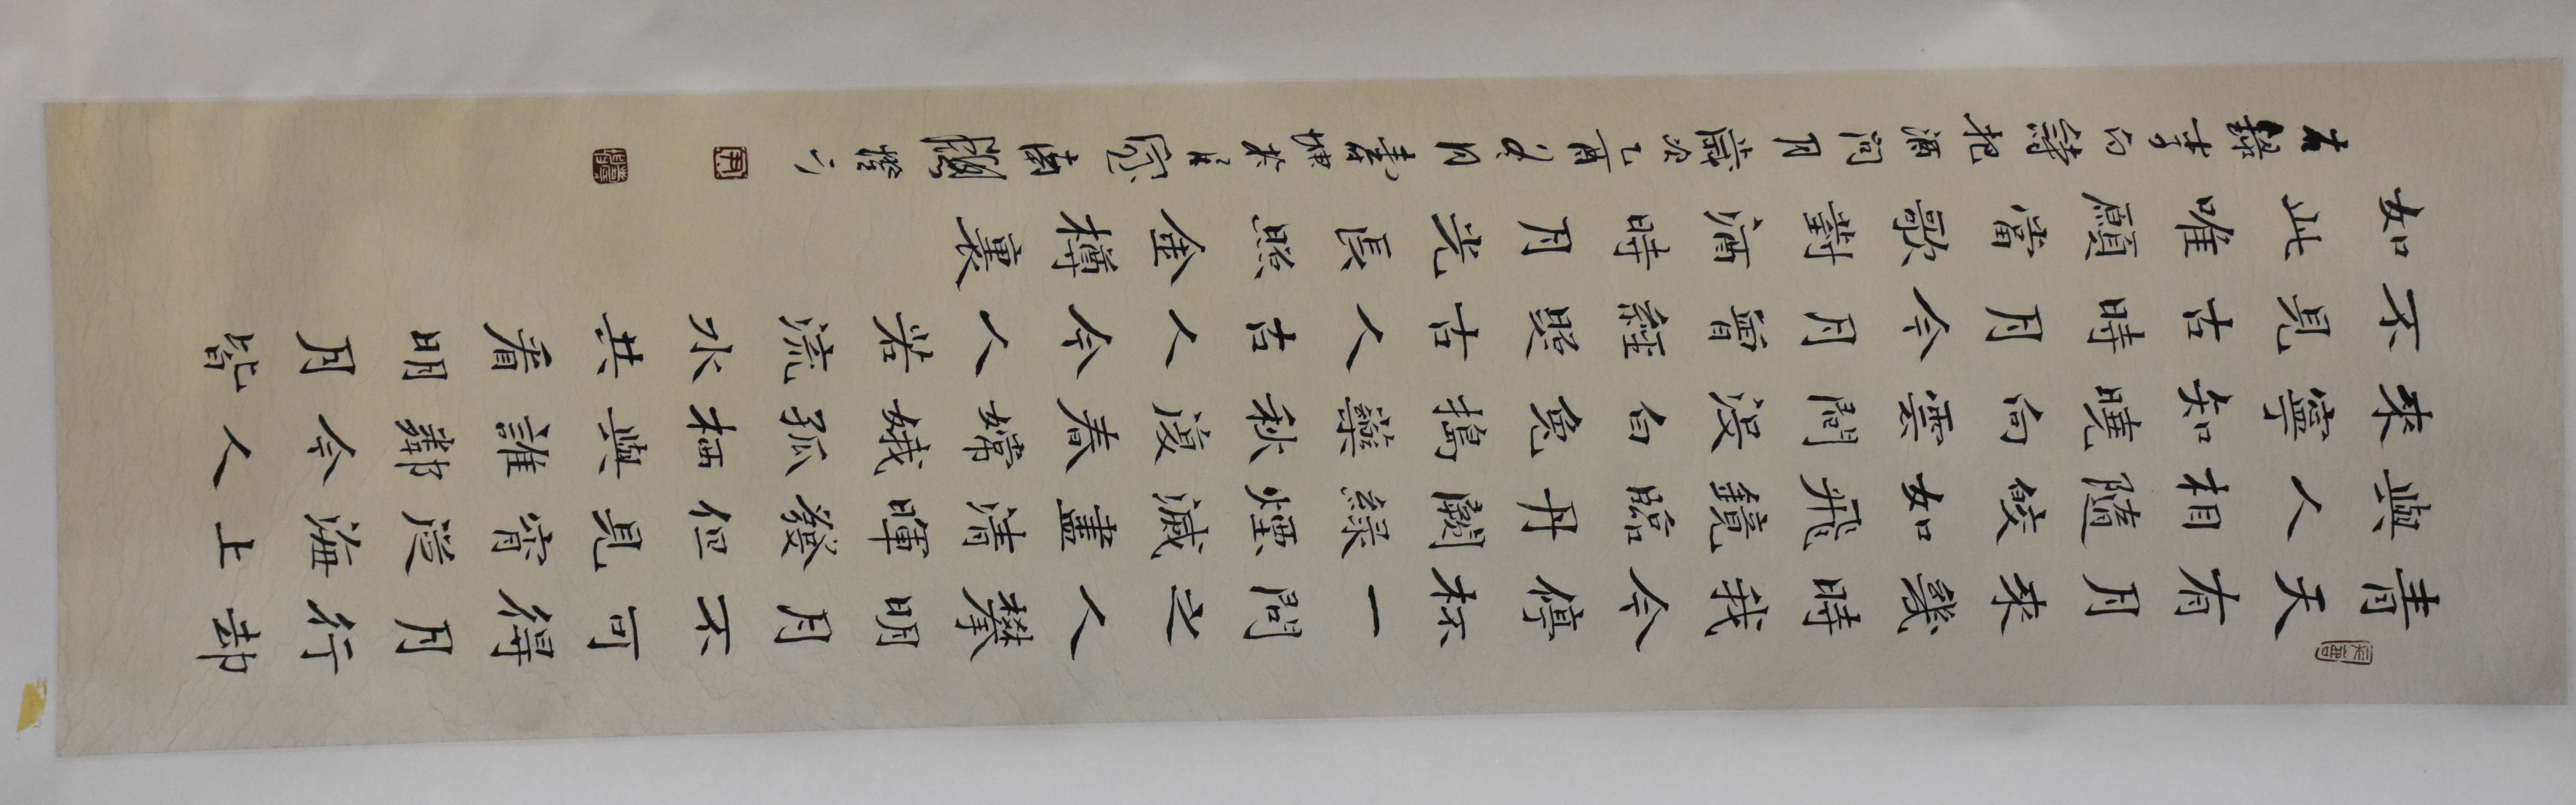 青天有月來幾時我今停杯一問之人攀明月不可得月行却
與人相隨皎如飛鏡臨丹闕綠煙滅盡清暉發但見宵從海上
來寧知曉向雲間沒白兔搗藥秋復春嫦娥孤栖與誰鄰今人
不見古時月今月曾經照古人古人今人若流水共看明月皆
如此唯願當歌對酒時月光長照金樽裏
右錄李白詩把酒問月歲次乙酉月書於